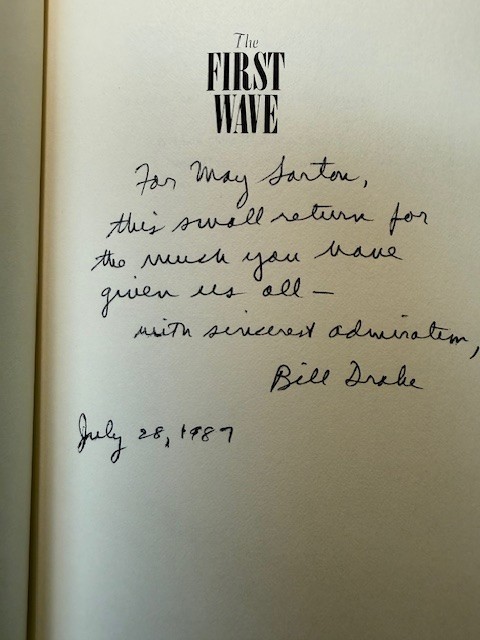 The
FIRST
WAVE
For May Sarton,
this small return for
the much you have
given us all —
with sincerest admiration,
Bill Drake
July 28, 1987